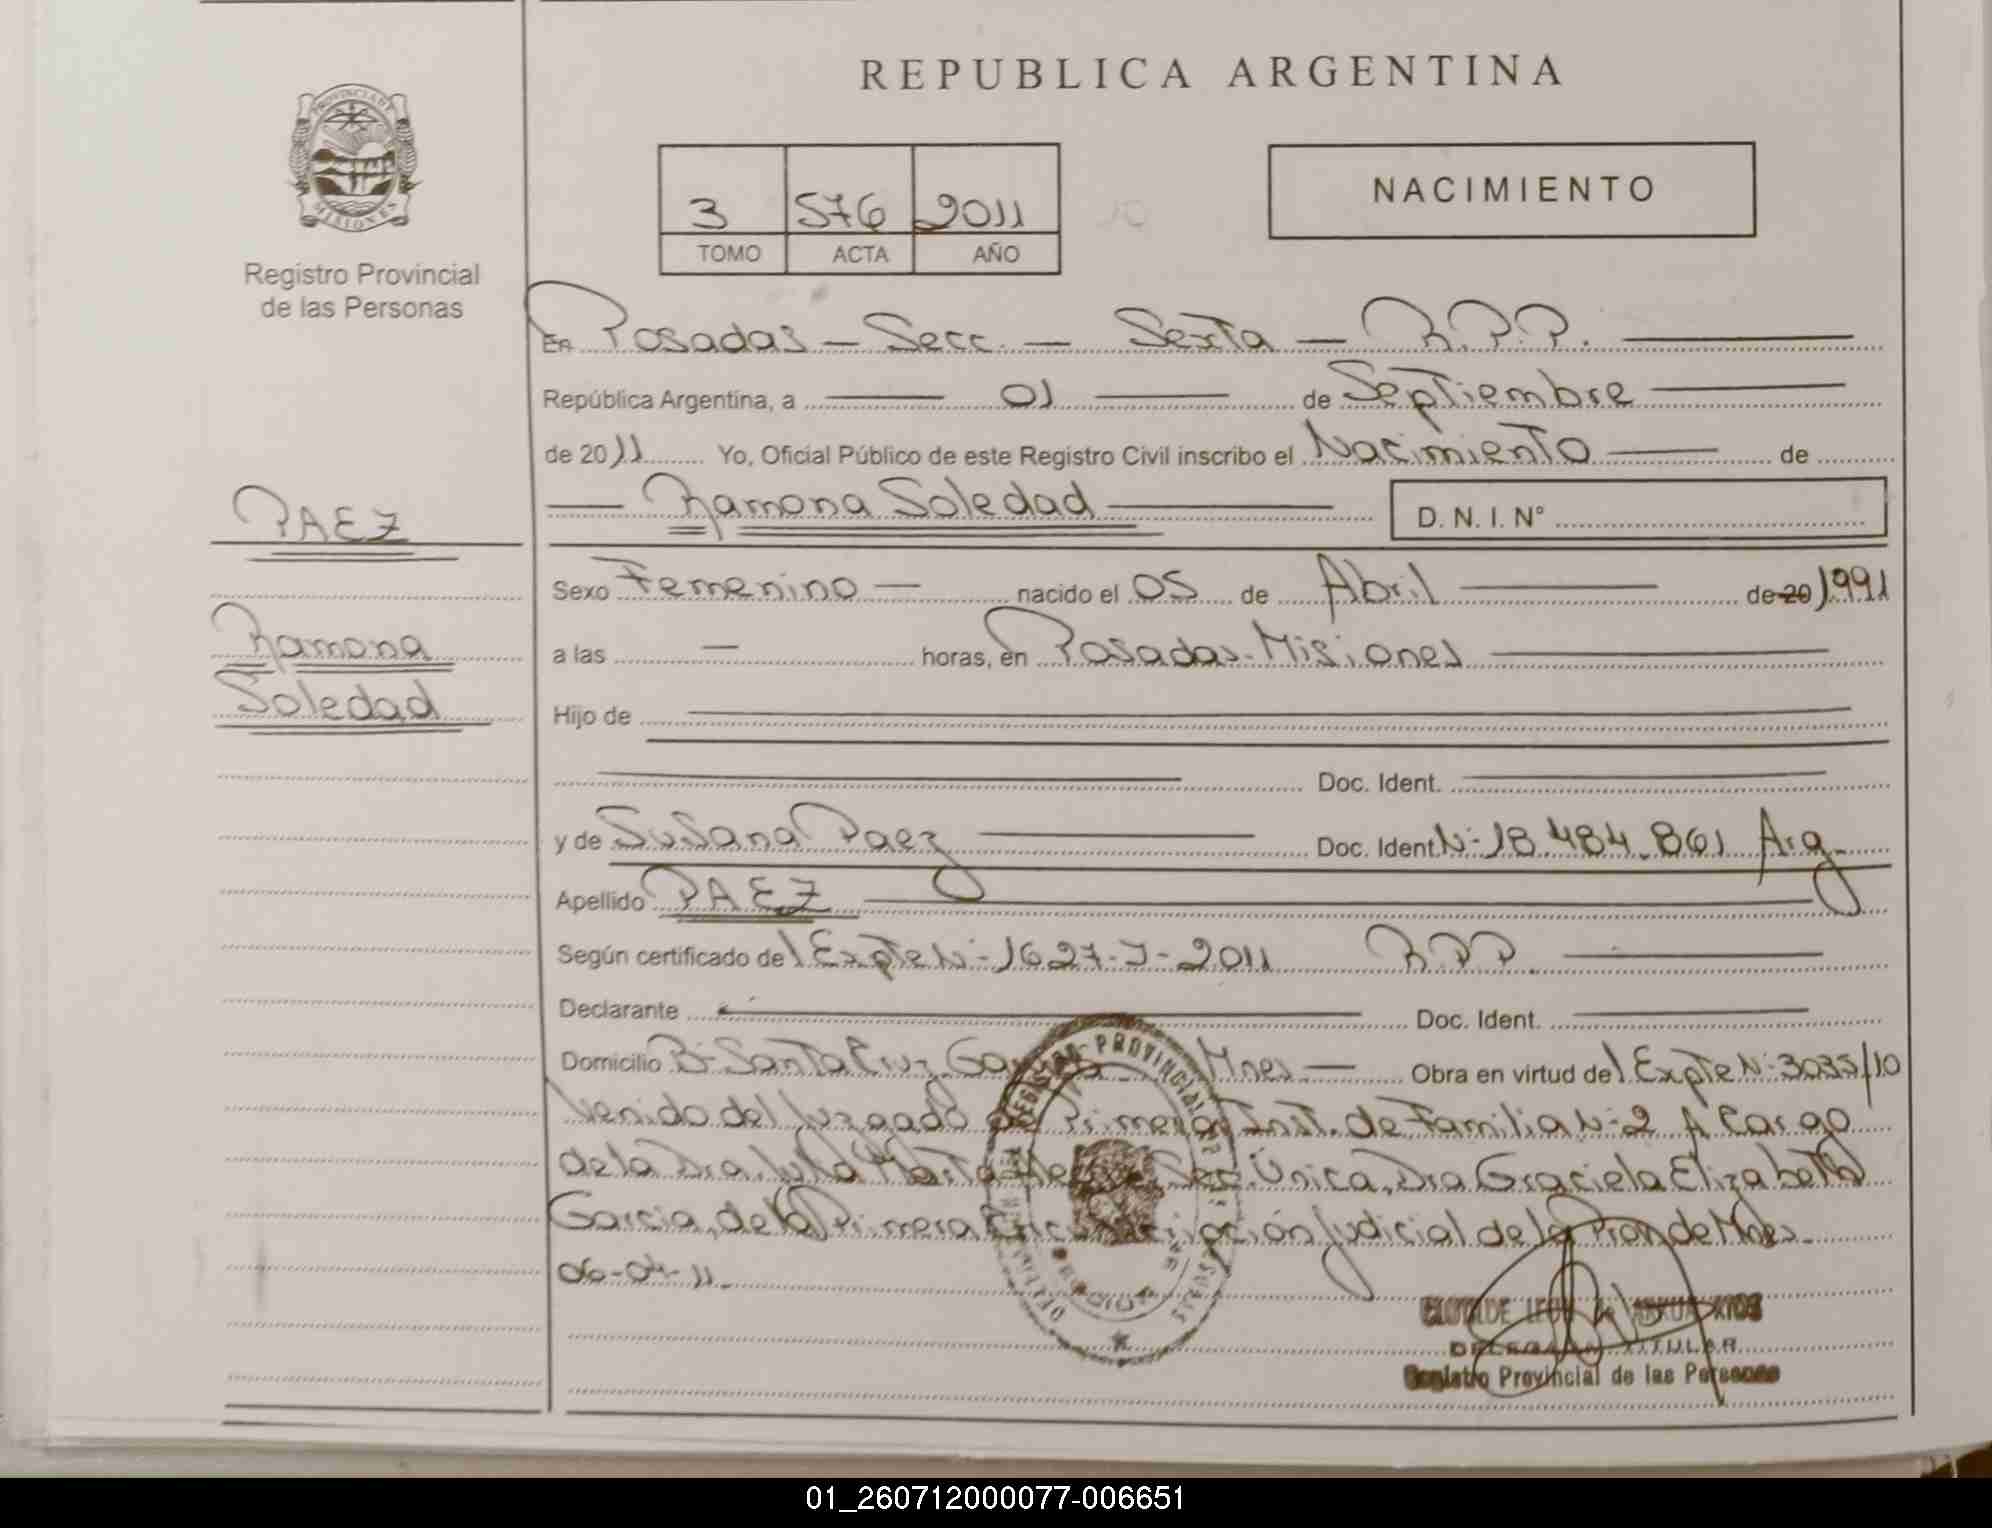 REPUBLICA ARGENTINA
PROVINCIA DE MISIONES
Registro Provincial
de las Personas
3 576 2011
TOMO ACTA AÑO
NACIMIENTO
En Posadas - Secc. - Sexta - R.P.P.
República Argentina, a 01 de Septiembre
de 2011 Yo, Oficial Público de este Registro Civil inscribo el Nacimiento de
Ramona Soledad D. N. I. N°
PAEZ
Sexo Femenino nacido el 05 de Abril de 20 1991
Ramona
Soledad
a las - horas, en Posadas-Misiones
Hijo de
Doc. Ident.
y de Susana Paez Doc. Ident N: 18.484.861 Arg.
Apellido PAEZ
Según certificado de l Expte N: 1627-J-2011 R.P.P.
Declarante Doc. Ident.
Domicilio B: Santa Cruz Mnes Obra en virtud de l Expte N: 3035/10
Venido del Juzgado de Primera Inst. de Familia N: 2 A Cargo
de la Dra. Marta Sec. Única, Dra Graciela Elizabeth
Garcia, de la Primera Judicial de la de Mnes.
06-04-11.
DELEGADA TITULAR
Registro Provincial de las Personas
01_260712000077-006651